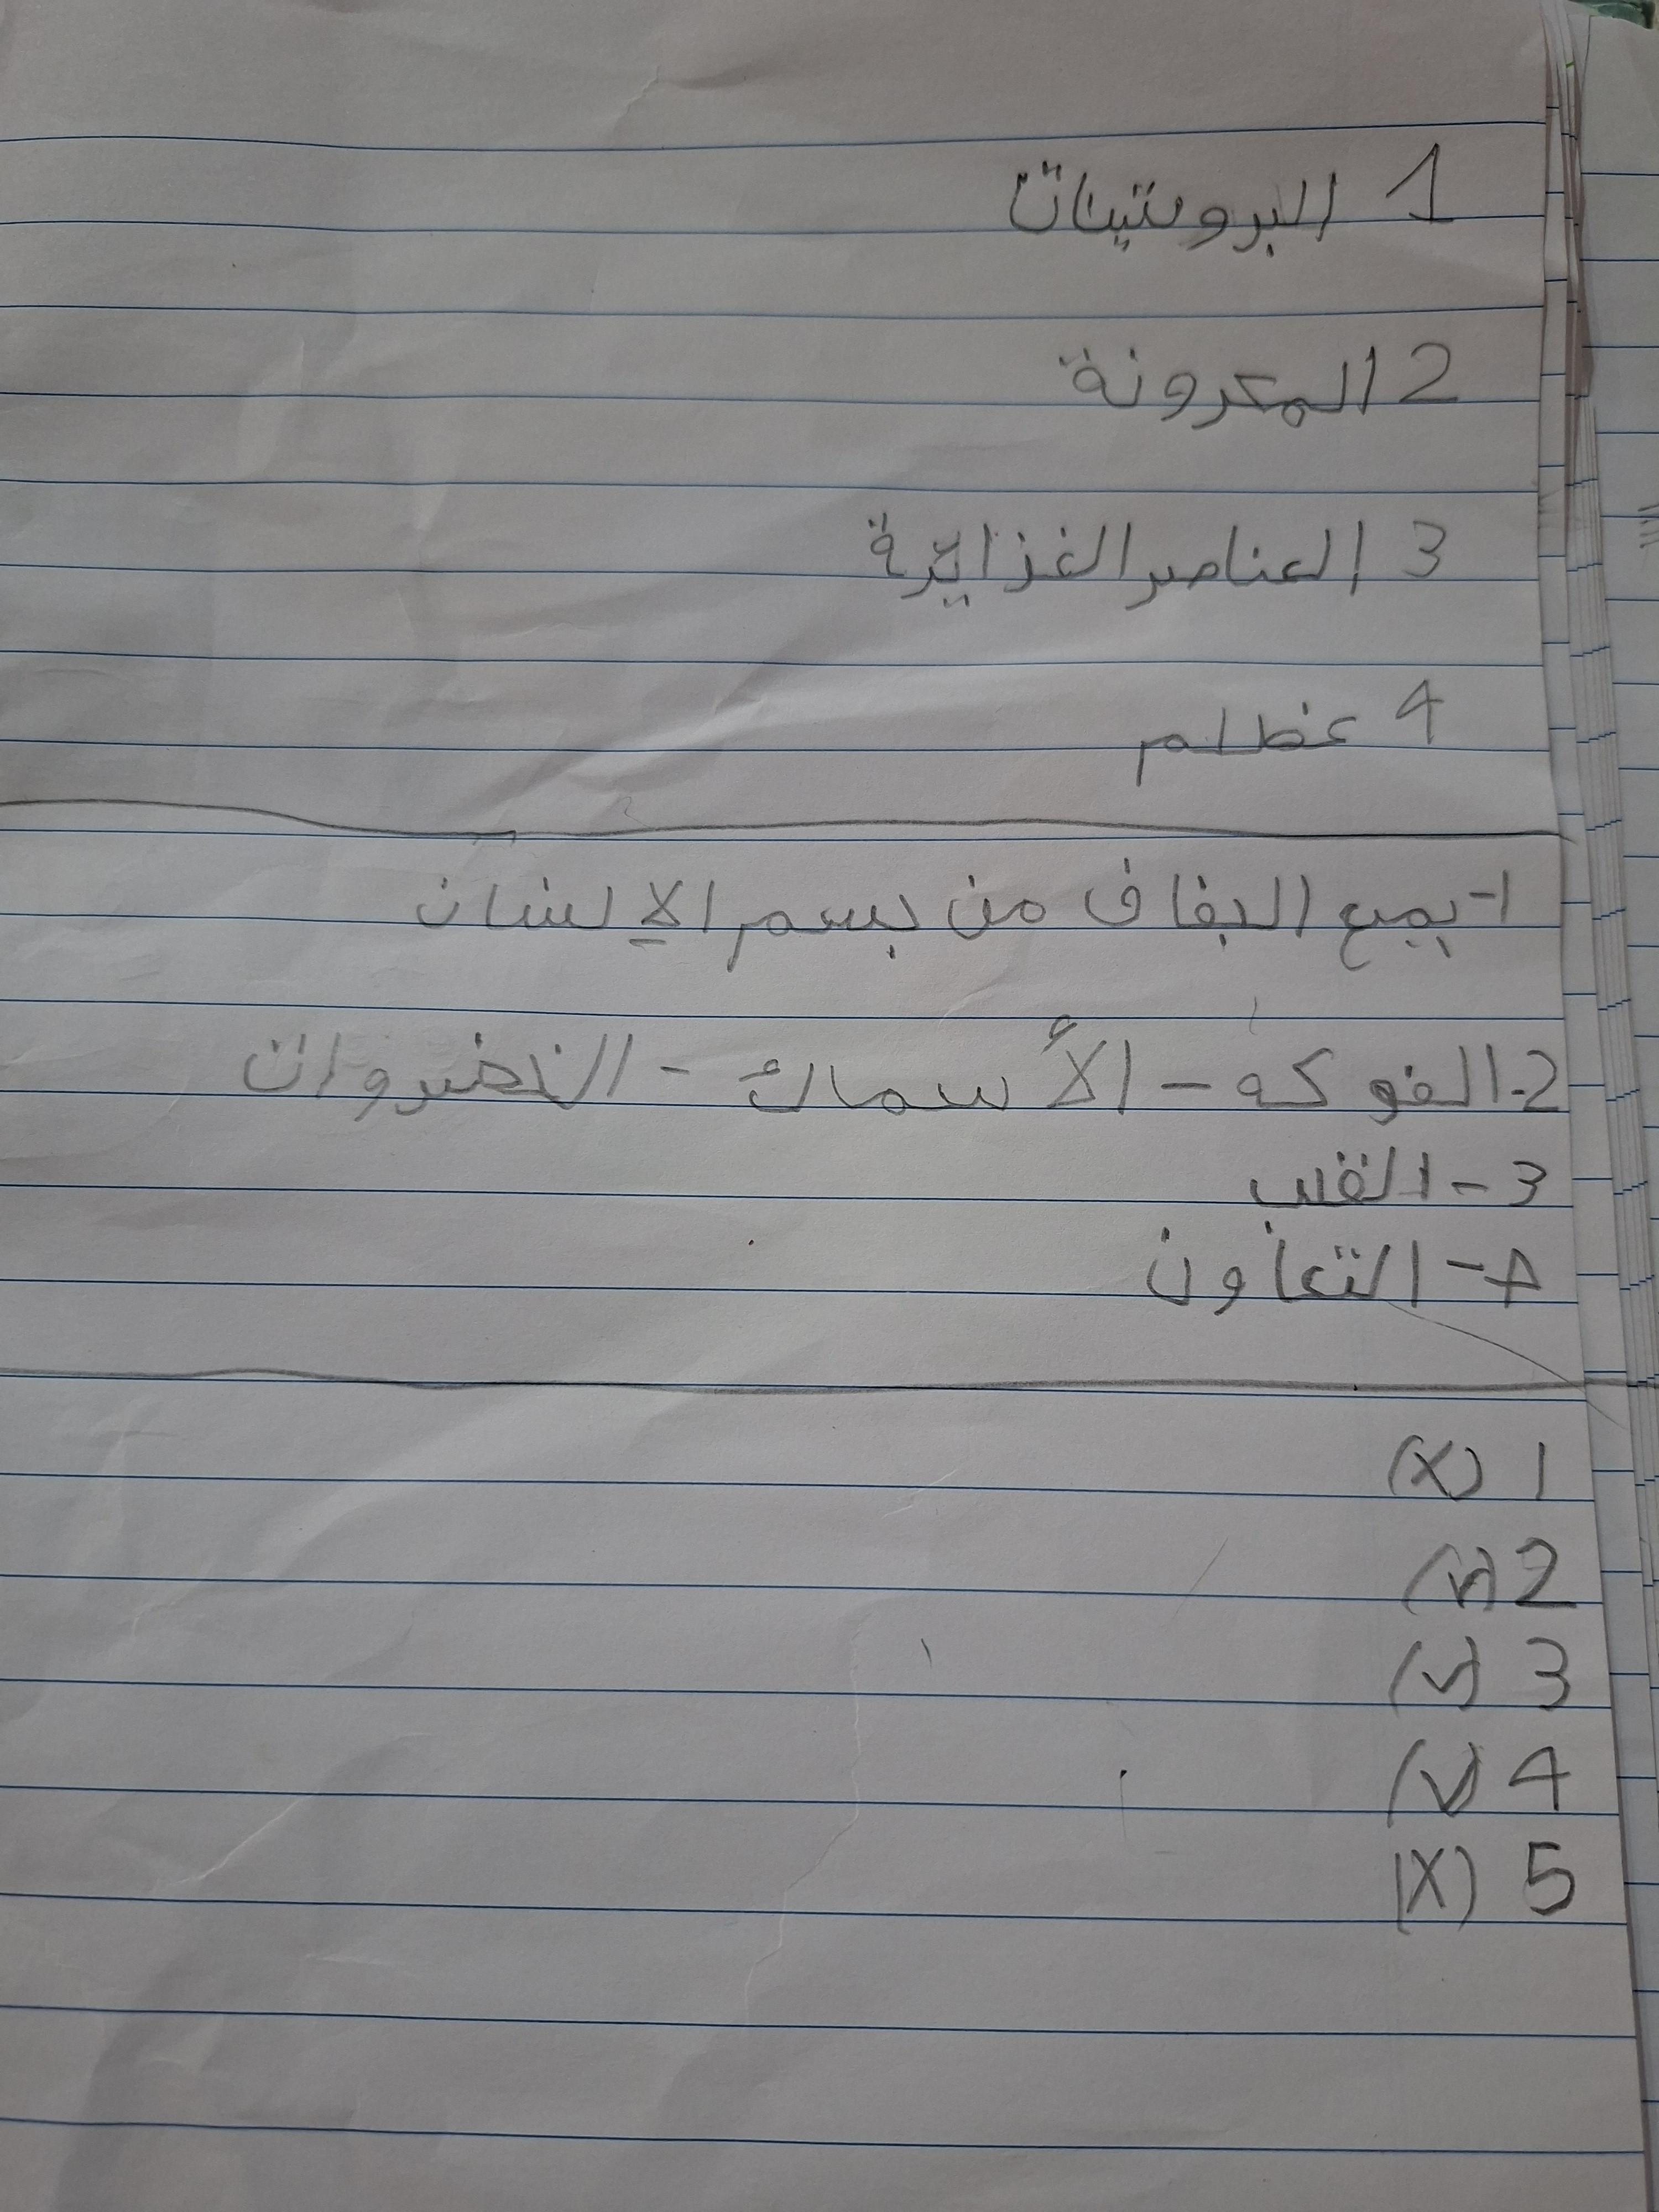 1 البروتينات
2 المكرونة
3 العناصر الغذائية
4 عظلم
1- يمنع الجفاف من جسم الإنسان
2- الفوكه - الأسماك - الخضروات
3- القلب
4- التعاون
1 (X)
2 (✓)
3 (✓)
4 (✓)
5 (X)